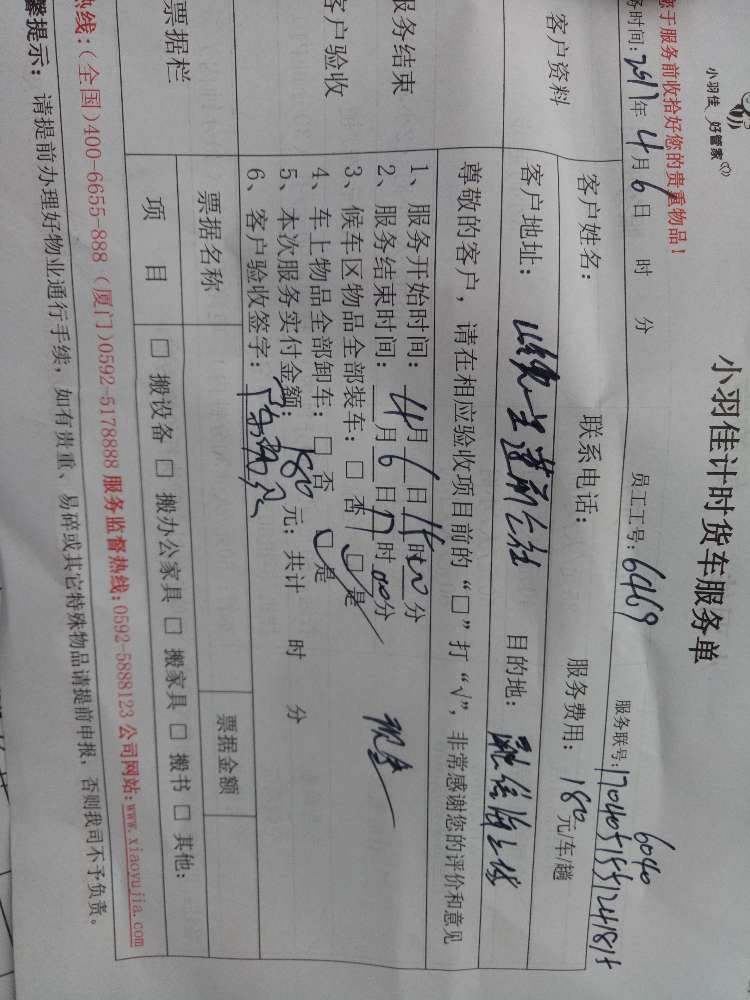 小羽佳 好管家
小羽佳计时货车服务单
于服务前收拾好您的贵重物品！
务时间：2017年 4月 6日 时 分 员工工号：6469 服务联号：
6040
客户资料
客户姓名： 联系电话： 服务费用：180元/车/趟
客户地址： 目的地：
尊敬的客户，请在相应验收项目前的“□”打“√”，非常感谢您的评价和意见
服务结束
客户验收
1、服务开始时间：4月6日15时00分
2、服务结束时间：4月6日17时00分
3、候车区物品全部装车：□ 否 □ 是
4、车上物品全部卸车：□ 否 □ 是
5、本次服务实付金额：180元；共计 时 分
6、客户验收签字：
现金
票据栏
票据名称 票据金额
项 目 □ 搬设备 □ 搬办公家具 □ 搬家具 □ 搬书 □ 其他：
热线：(全国)400-6655-888 (厦门)0592-5178888 服务监督热线：0592-5888123 公司网站：www.xiaoyujia.com
馨提示：请提前办理好物业通行手续，如有贵重、易碎或其它特殊物品请提前申报，否则我司不予负责。